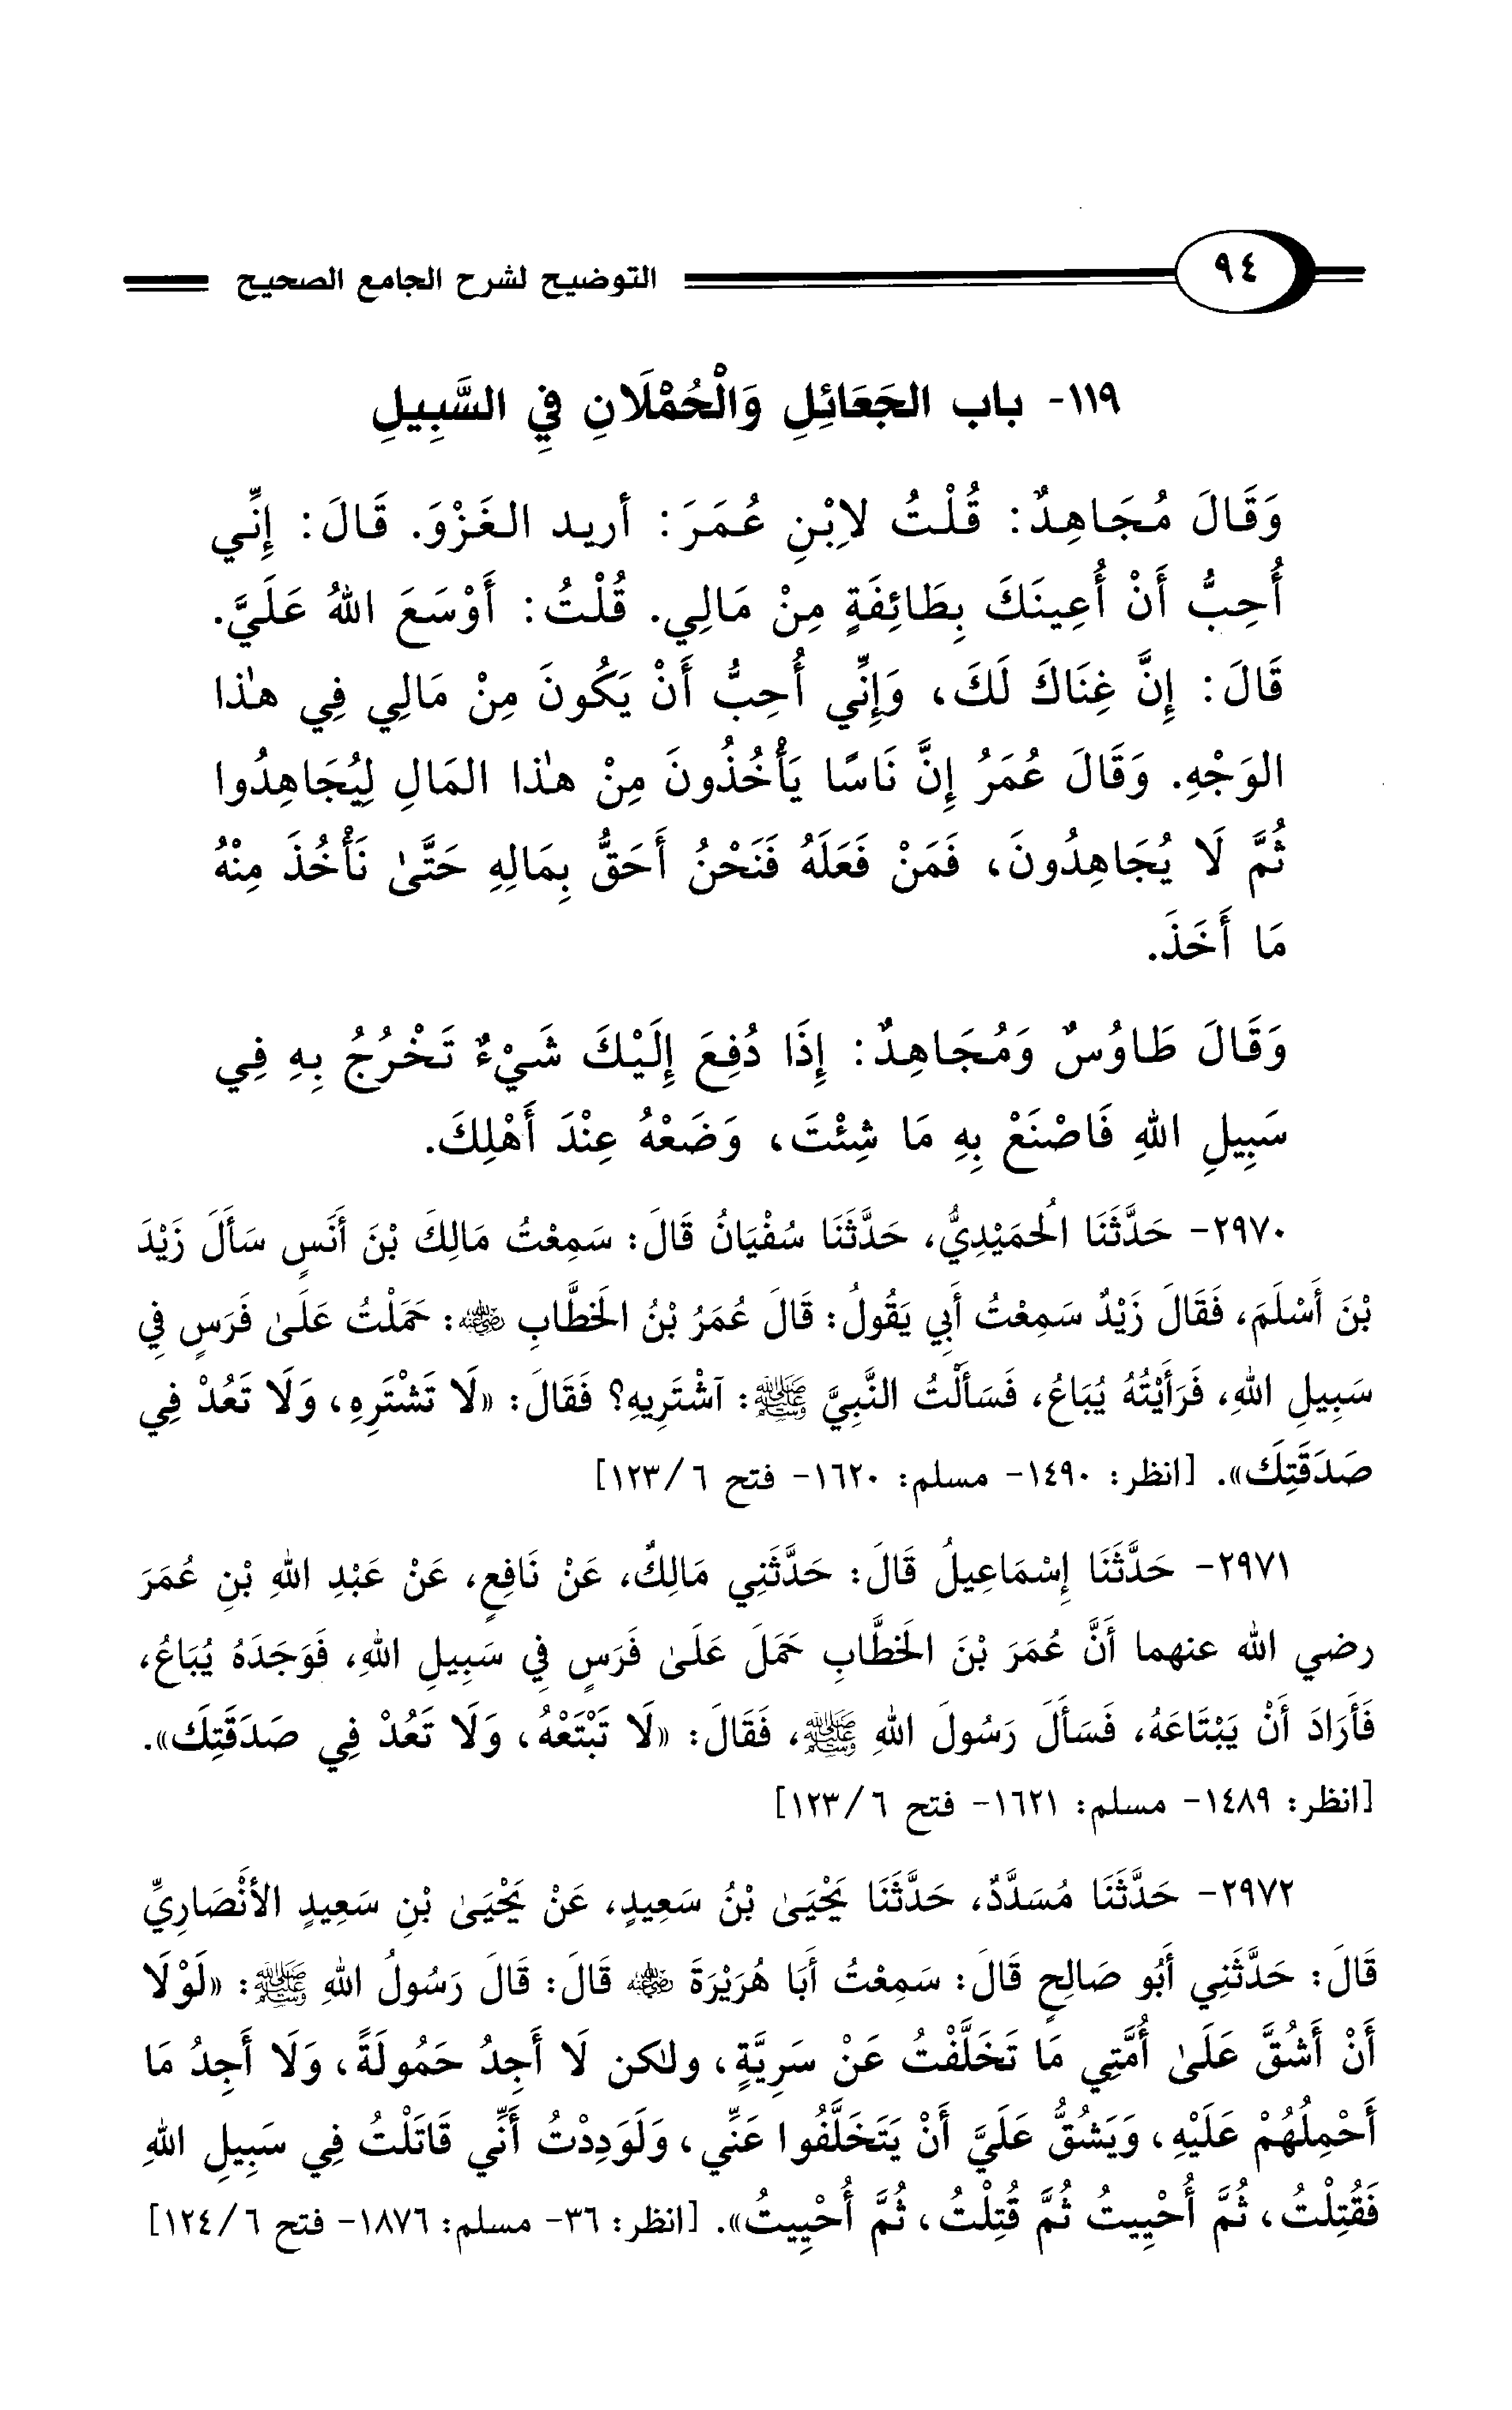 ٩٤
التوضيح لشرح الجامع الصحيح
١١٩- باب الجَعَائِلِ وَالْحُمْلَانِ فِي السَّبِيلِ
وَقَالَ مُجَاهِدٌ: قُلْتُ لاِبْنِ عُمَرَ: أريد الغَزْوَ. قَالَ: إِنِّي
أُحِبُّ أَنْ أُعِينَكَ بِطَائِفَةٍ مِنْ مَالِي. قُلْتُ: أَوْسَعَ اللهُ عَلَيَّ.
قَالَ: إِنَّ غِنَاكَ لَكَ، وَإِنِّي أُحِبُّ أَنْ يَكُونَ مِنْ مَالِي فِي هذا
الوَجْهِ. وَقَالَ عُمَرُ إِنَّ نَاسًا يَأْخُذُونَ مِنْ هذا المَالِ لِيُجَاهِدُوا
ثُمَّ لَا يُجَاهِدُونَ، فَمَنْ فَعَلَهُ فَنَحْنُ أَحَقُّ بِمَالِهِ حَتَّىٰ نَأْخُذَ مِنْهُ
مَا أَخَذَ.
وَقَالَ طَاوُسٌ وَمُجَاهِدٌ: إِذَا دُفِعَ إِلَيْكَ شَيْءٌ تَخْرُجُ بِهِ فِي
سَبِيلِ اللهِ فَاصْنَعْ بِهِ مَا شِئْتَ، وَضَعْهُ عِنْدَ أَهْلِكَ.
٢٩٧٠- حَدَّثَنَا الُحمَيْدِيُّ، حَدَّثَنَا سُفْيَانُ قَالَ: سَمِعْتُ مَالِكَ بْنَ أَنَسٍ سَأَلَ زَيْدَ
بْنَ أَسْلَمَ، فَقَالَ زَيْدٌ سَمِعْتُ أَبِي يَقُولُ: قَالَ عُمَرُ بْنُ الَخطَّابِ رضي الله عنه: حَمَلْتُ عَلَىٰ فَرَسٍ فِي
سَبِيلِ اللهِ، فَرَأَيْتُهُ يُبَاعُ، فَسَأَلْتُ النَّبِيَّ ﷺ: آشْتَرِيهِ؟ فَقَالَ: «لَا تَشْتَرِهِ، وَلَا تَعُدْ فِي
صَدَقَتِكَ». [انظر: ١٤٩٠- مسلم: ١٦٢٠- فتح ٦/١٢٣]
٢٩٧١- حَدَّثَنَا إِسْمَاعِيلُ قَالَ: حَدَّثَنِي مَالِكٌ، عَنْ نَافِعٍ، عَنْ عَبْدِ اللهِ بْنِ عُمَرَ
رضي الله عنهما أَنَّ عُمَرَ بْنَ الَخطَّابِ حَمَلَ عَلَىٰ فَرَسٍ فِي سَبِيلِ اللهِ، فَوَجَدَهُ يُبَاعُ،
فَأَرَادَ أَنْ يَبْتَاعَهُ، فَسَأَلَ رَسُولَ اللهِ ﷺ، فَقَالَ: «لَا تَبْتَعْهُ، وَلَا تَعُدْ فِي صَدَقَتِكَ».
[انظر: ١٤٨٩- مسلم: ١٦٢١- فتح ٦/١٢٣]
٢٩٧٢- حَدَّثَنَا مُسَدَّدٌ، حَدَّثَنَا يَحْيَىٰ بْنُ سَعِيدٍ، عَنْ يَحْيَىٰ بْنِ سَعِيدٍ الأَنْصَارِيِّ
قَالَ: حَدَّثَنِي أَبُو صَالِحٍ قَالَ: سَمِعْتُ أَبَا هُرَيْرَةَ رضي الله عنه قَالَ: قَالَ رَسُولُ اللهِ ﷺ: «لَوْلَا
أَنْ أَشُقَّ عَلَىٰ أُمَّتِي مَا تَخَلَّفْتُ عَنْ سَرِيَّةٍ، ولكن لَا أَجِدُ حَمُولَةً، وَلَا أَجِدُ مَا
أَحْمِلُهُمْ عَلَيْهِ، وَيَشُقُّ عَلَيَّ أَنْ يَتَخَلَّفُوا عَنِّي، وَلَوَدِدْتُ أَنِّي قَاتَلْتُ فِي سَبِيلِ اللهِ
فَقُتِلْتُ، ثُمَّ أُحْيِيتُ ثُمَّ قُتِلْتُ، ثُمَّ أُحْيِيتُ». [انظر: ٣٦- مسلم: ١٨٧٦- فتح ٦/١٢٤]